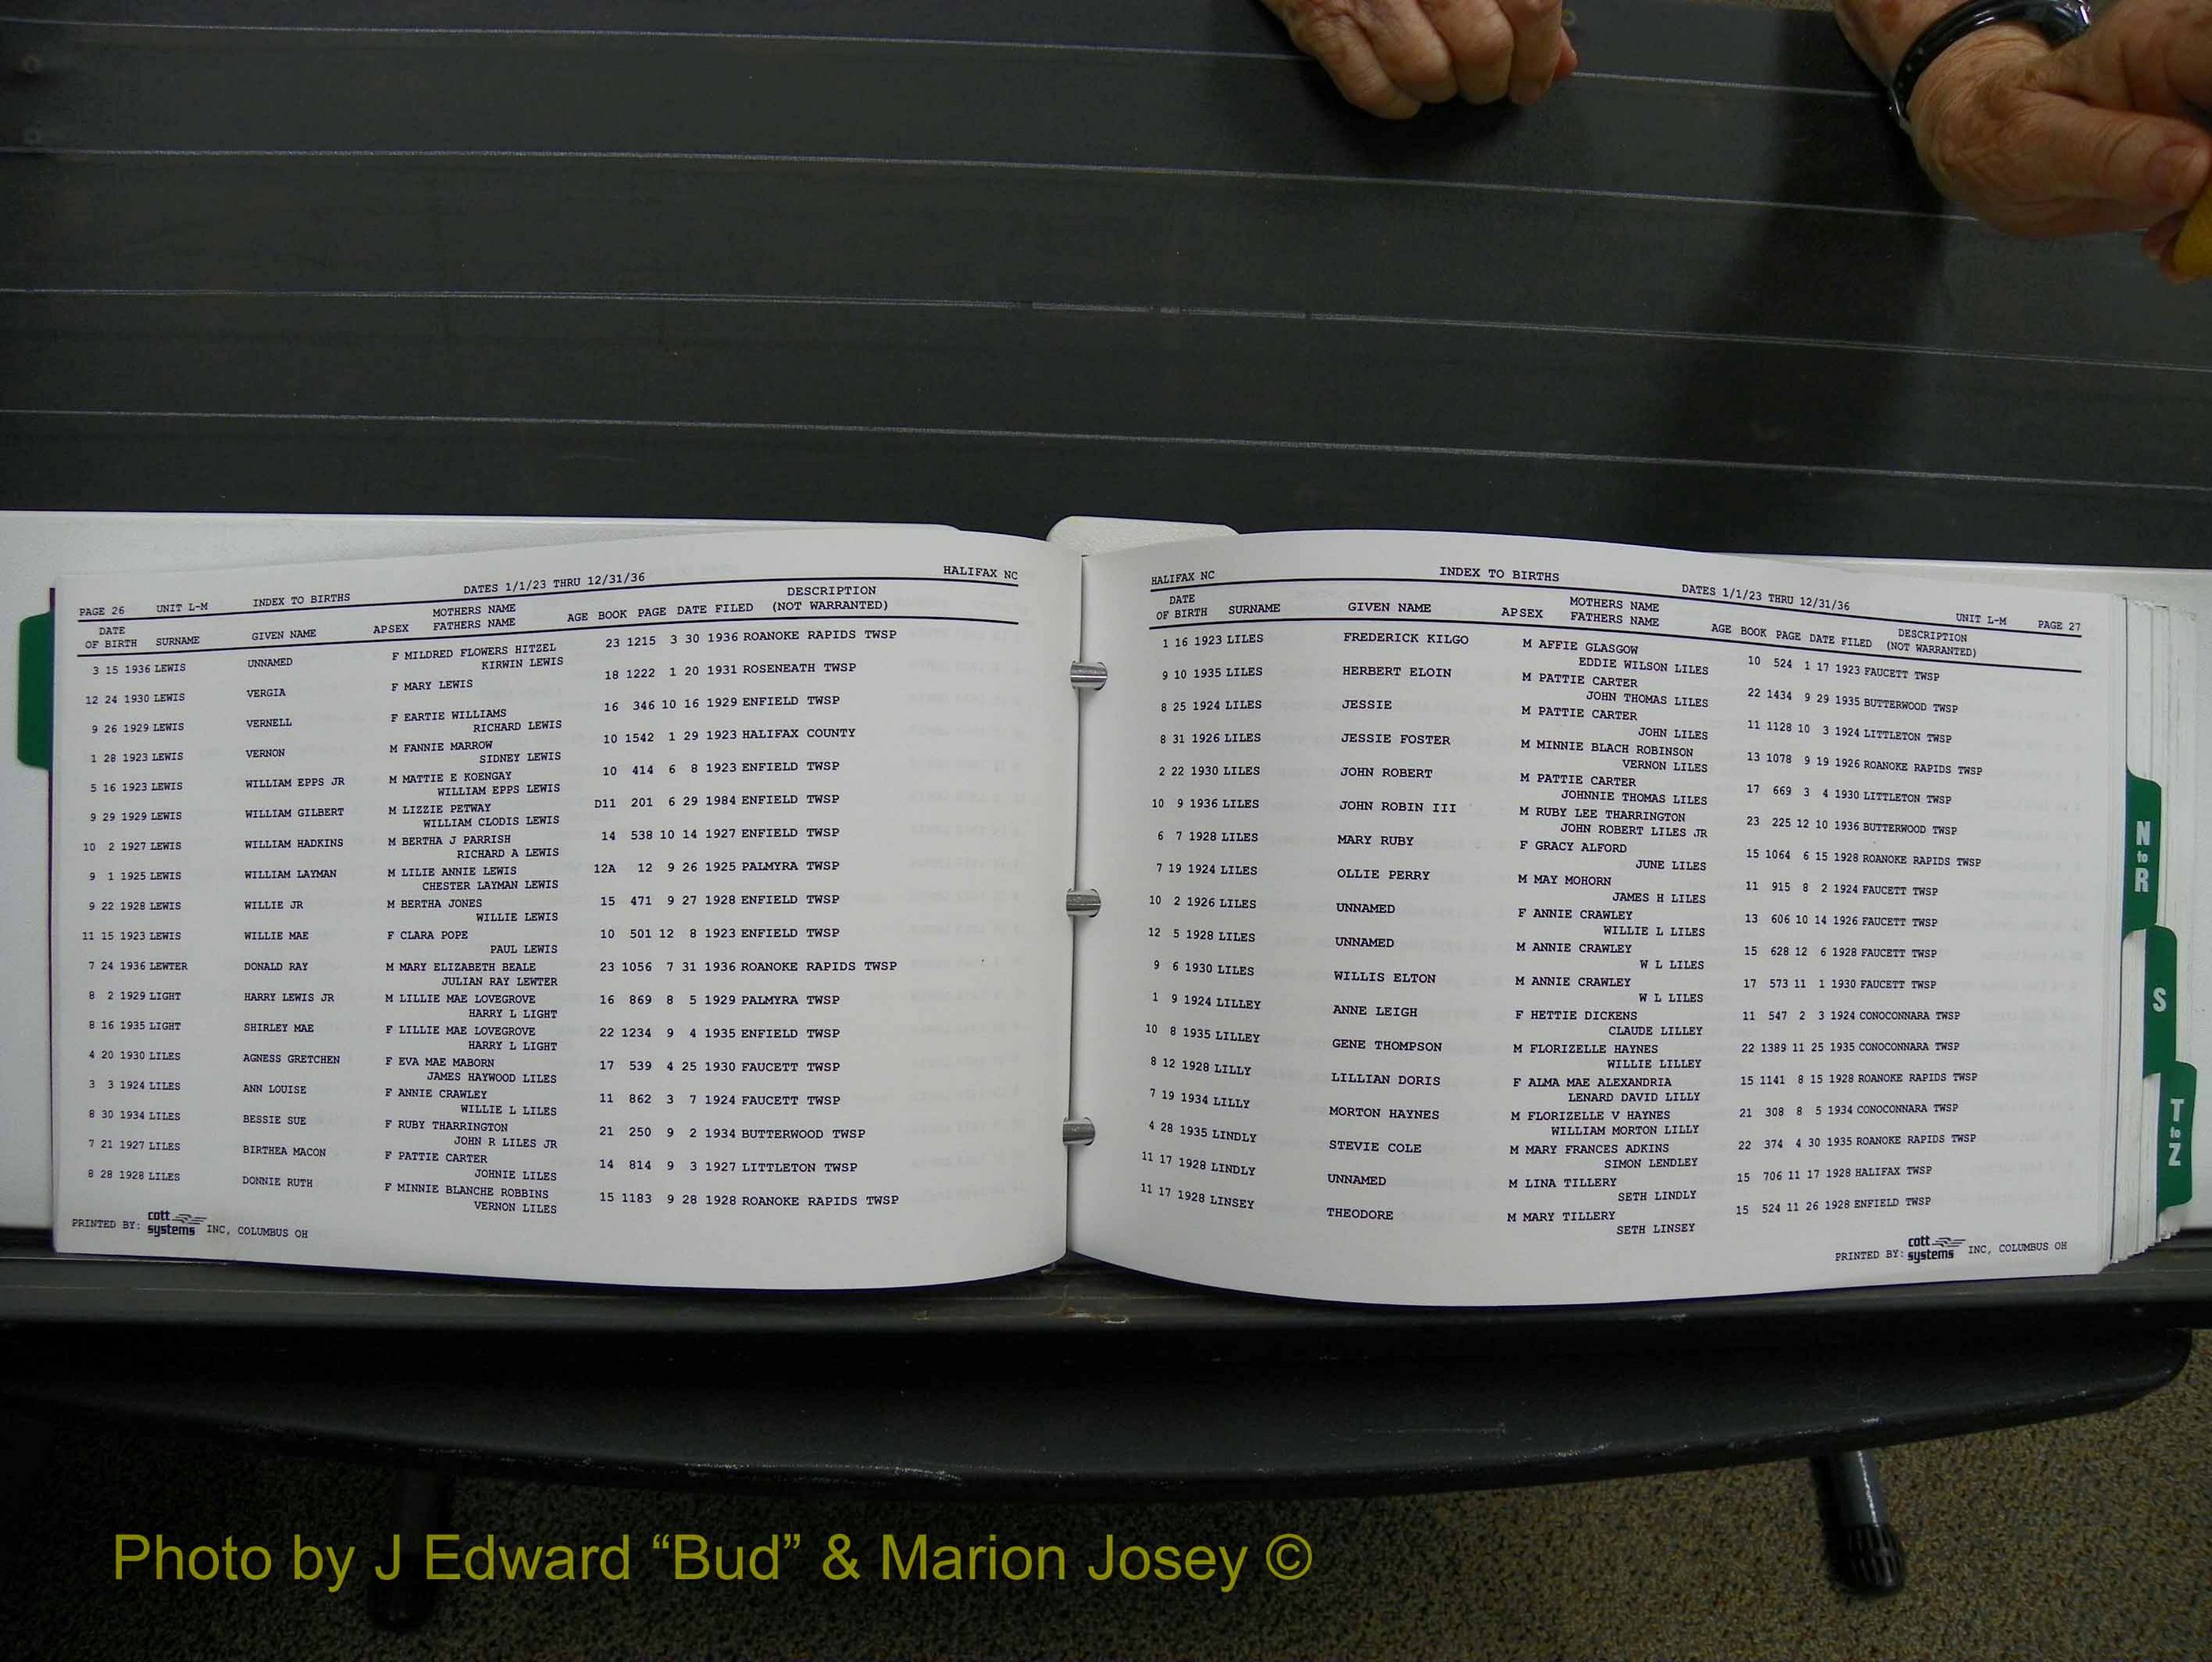 PAGE 26 UNIT L-M INDEX TO BIRTHS DATES 1/1/23 THRU 12/31/36 HALIFAX NC
DATE OF BIRTH SURNAME GIVEN NAME APSEX MOTHERS NAME FATHERS NAME AGE BOOK PAGE DATE FILED DESCRIPTION (NOT WARRANTED)
3 15 1936 LEWIS UNNAMED F MILDRED FLOWERS HITZEL 23 1215 3 30 1936 ROANOKE RAPIDS TWSP
KIRWIN LEWIS
12 24 1930 LEWIS VERGIA F MARY LEWIS 18 1222 1 20 1931 ROSENEATH TWSP
9 26 1929 LEWIS VERNELL F EARTIE WILLIAMS 16 346 10 16 1929 ENFIELD TWSP
RICHARD LEWIS
1 28 1923 LEWIS VERNON M FANNIE MARROW 10 1542 1 29 1923 HALIFAX COUNTY
SIDNEY LEWIS
5 16 1923 LEWIS WILLIAM EPPS JR M MATTIE E KOENGAY 10 414 6 8 1923 ENFIELD TWSP
WILLIAM EPPS LEWIS
9 29 1929 LEWIS WILLIAM GILBERT M LIZZIE PETWAY D11 201 6 29 1984 ENFIELD TWSP
WILLIAM CLODIS LEWIS
10 2 1927 LEWIS WILLIAM HADKINS M BERTHA J PARRISH 14 538 10 14 1927 ENFIELD TWSP
RICHARD A LEWIS
9 1 1925 LEWIS WILLIAM LAYMAN M LILIE ANNIE LEWIS 12A 12 9 26 1925 PALMYRA TWSP
CHESTER LAYMAN LEWIS
9 22 1928 LEWIS WILLIE JR M BERTHA JONES 15 471 9 27 1928 ENFIELD TWSP
WILLIE LEWIS
11 15 1923 LEWIS WILLIE MAE F CLARA POPE 10 501 12 8 1923 ENFIELD TWSP
PAUL LEWIS
7 24 1936 LEWTER DONALD RAY M MARY ELIZABETH BEALE 23 1056 7 31 1936 ROANOKE RAPIDS TWSP
JULIAN RAY LEWTER
8 2 1929 LIGHT HARRY LEWIS JR M LILLIE MAE LOVEGROVE 16 869 8 5 1929 PALMYRA TWSP
HARRY L LIGHT
8 16 1935 LIGHT SHIRLEY MAE F LILLIE MAE LOVEGROVE 22 1234 9 4 1935 ENFIELD TWSP
HARRY L LIGHT
4 20 1930 LILES AGNESS GRETCHEN F EVA MAE MABORN 17 539 4 25 1930 FAUCETT TWSP
JAMES HAYWOOD LILES
3 3 1924 LILES ANN LOUISE F ANNIE CRAWLEY 11 862 3 7 1924 FAUCETT TWSP
WILLIE L LILES
8 30 1934 LILES BESSIE SUE F RUBY THARRINGTON 21 250 9 2 1934 BUTTERWOOD TWSP
JOHN R LILES JR
7 21 1927 LILES BIRTHEA MACON F PATTIE CARTER 14 814 9 3 1927 LITTLETON TWSP
JOHNIE LILES
8 28 1928 LILES DONNIE RUTH F MINNIE BLANCHE ROBBINS 15 1183 9 28 1928 ROANOKE RAPIDS TWSP
VERNON LILES
PRINTED BY: cott systems INC, COLUMBUS OH
HALIFAX NC INDEX TO BIRTHS DATES 1/1/23 THRU 12/31/36 UNIT L-M PAGE 27
DATE OF BIRTH SURNAME GIVEN NAME APSEX MOTHERS NAME FATHERS NAME AGE BOOK PAGE DATE FILED DESCRIPTION (NOT WARRANTED)
1 16 1923 LILES FREDERICK KILGO M AFFIE GLASGOW 10 524 1 17 1923 FAUCETT TWSP
EDDIE WILSON LILES
9 10 1935 LILES HERBERT ELOIN M PATTIE CARTER 22 1434 9 29 1935 BUTTERWOOD TWSP
JOHN THOMAS LILES
8 25 1924 LILES JESSIE M PATTIE CARTER 11 1128 10 3 1924 LITTLETON TWSP
JOHN LILES
8 31 1926 LILES JESSIE FOSTER M MINNIE BLACH ROBINSON 13 1078 9 19 1926 ROANOKE RAPIDS TWSP
VERNON LILES
2 22 1930 LILES JOHN ROBERT M PATTIE CARTER 17 669 3 4 1930 LITTLETON TWSP
JOHNNIE THOMAS LILES
10 9 1936 LILES JOHN ROBIN III M RUBY LEE THARRINGTON 23 225 12 10 1936 BUTTERWOOD TWSP
JOHN ROBERT LILES JR
6 7 1928 LILES MARY RUBY F GRACY ALFORD 15 1064 6 15 1928 ROANOKE RAPIDS TWSP
JUNE LILES
7 19 1924 LILES OLLIE PERRY M MAY MOHORN 11 915 8 2 1924 FAUCETT TWSP
JAMES H LILES
10 2 1926 LILES UNNAMED F ANNIE CRAWLEY 13 606 10 14 1926 FAUCETT TWSP
WILLIE L LILES
12 5 1928 LILES UNNAMED M ANNIE CRAWLEY 15 628 12 6 1928 FAUCETT TWSP
W L LILES
9 6 1930 LILES WILLIS ELTON M ANNIE CRAWLEY 17 573 11 1 1930 FAUCETT TWSP
W L LILES
1 9 1924 LILLEY ANNE LEIGH F HETTIE DICKENS 11 547 2 3 1924 CONOCONNARA TWSP
CLAUDE LILLEY
10 8 1935 LILLEY GENE THOMPSON M FLORIZELLE HAYNES 22 1389 11 25 1935 CONOCONNARA TWSP
WILLIE LILLEY
8 12 1928 LILLY LILLIAN DORIS F ALMA MAE ALEXANDRIA 15 1141 8 15 1928 ROANOKE RAPIDS TWSP
LENARD DAVID LILLY
7 19 1934 LILLY MORTON HAYNES M FLORIZELLE V HAYNES 21 308 8 5 1934 CONOCONNARA TWSP
WILLIAM MORTON LILLY
4 28 1935 LINDLY STEVIE COLE M MARY FRANCES ADKINS 22 374 4 30 1935 ROANOKE RAPIDS TWSP
SIMON LENDLEY
11 17 1928 LINDLY UNNAMED M LINA TILLERY 15 706 11 17 1928 HALIFAX TWSP
SETH LINDLY
11 17 1928 LINSEY THEODORE M MARY TILLERY 15 524 11 26 1928 ENFIELD TWSP
SETH LINSEY
PRINTED BY: cott systems INC, COLUMBUS OH
N to R
S
T to Z
Photo by J Edward “Bud” & Marion Josey ©